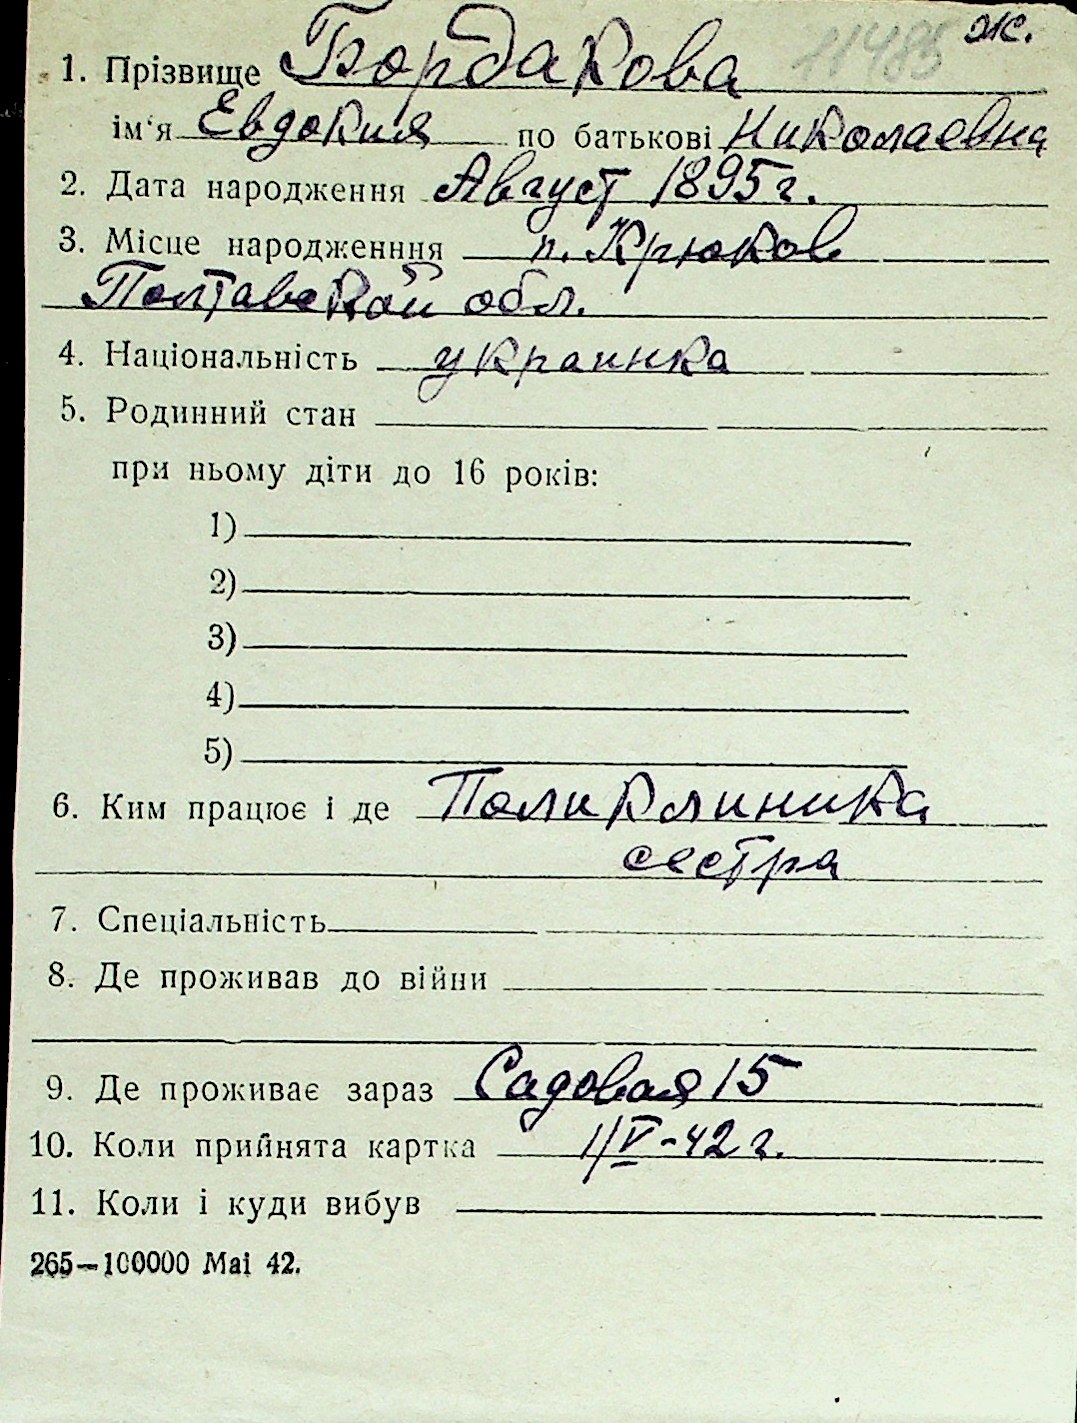 11485 ж.
1. Прізвище Бордакова
ім'я Евдокия по батькові Николаевна
2. Дата народження Август 1895 г.
3. Місце народженння п. Крюков
Полтавской обл.
4. Національність украинка
5. Родинний стан
при ньому діти до 16 років:
1)
2)
3)
4)
5)
6. Ким працює і де Поликлиника
сестра
7. Спеціальність
8. Де проживав до війни
9. Де проживає зараз Садовая 15
10. Коли прийнята картка 1/V-42 г.
11. Коли і куди вибув
265—100000 Mai 42.